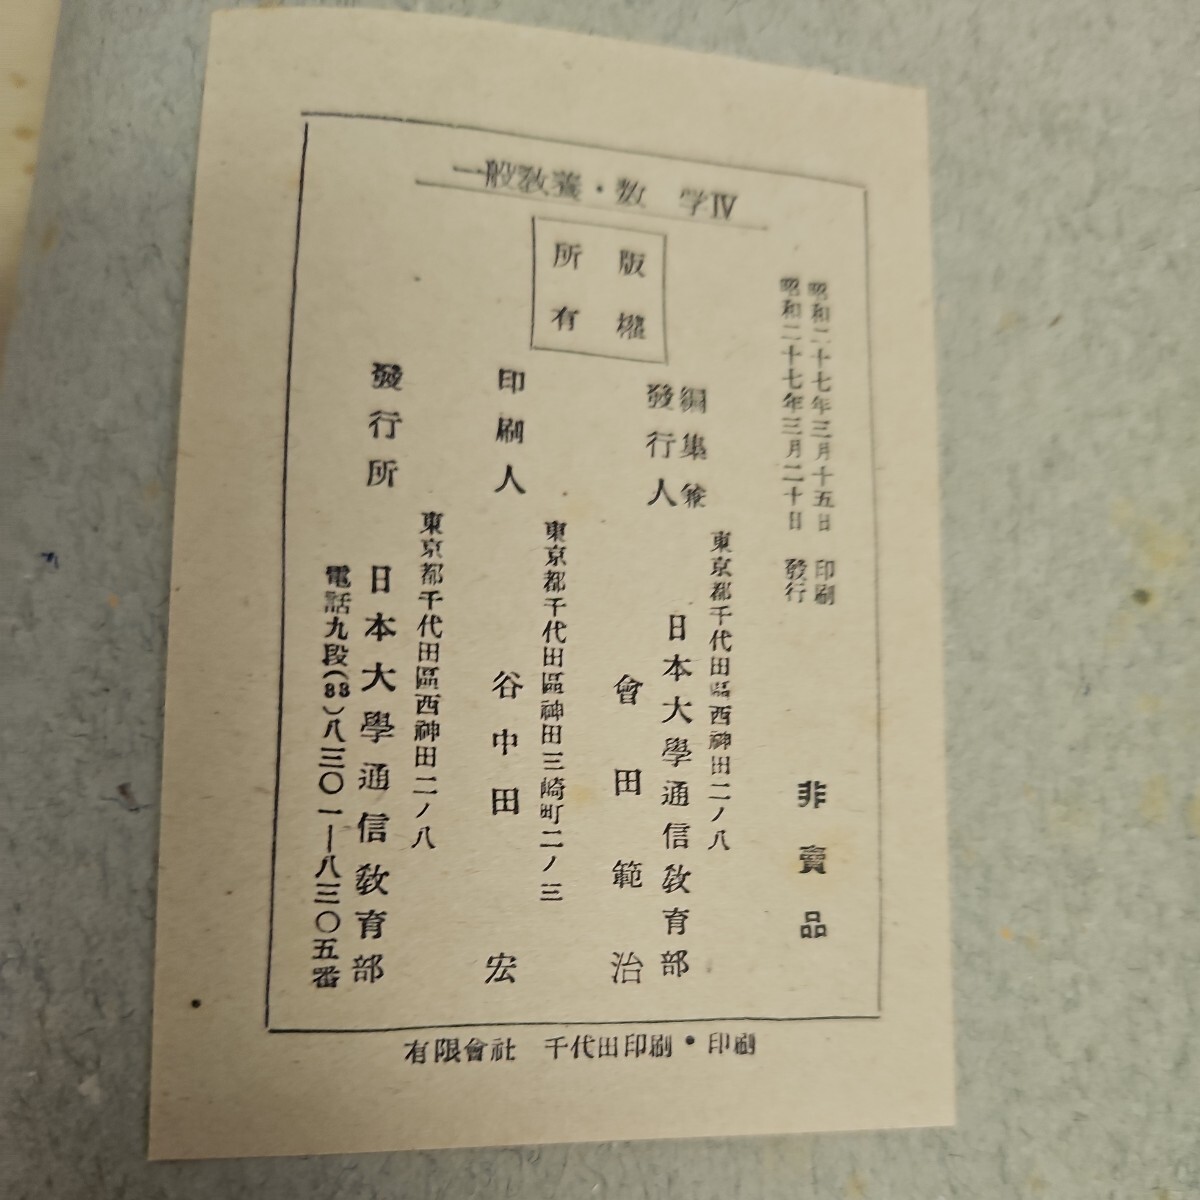 一般教養・数 学Ⅳ
版權
所有
昭和二十七年三月十五日 印刷
昭和二十七年三月二十日 發行
非賣品
編集兼
發行人
東京都千代田區西神田二ノ八
日本大學通信教育部
會田範治
印刷人
東京都千代田區神田三崎町二ノ三
谷中田 宏
發行所
東京都千代田區西神田二ノ八
日本大學通信教育部
電話九段(33)八三〇一―八三〇五番
有限會社 千代田印刷・印刷